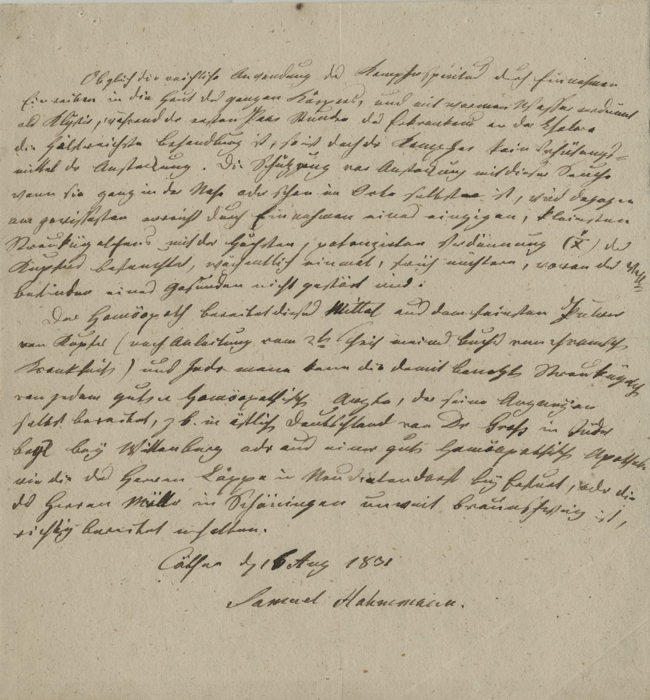 Obgleich die reichliche Anwendung des Kampherspiritus durch Einnehmen
Einreiben in die Haut des ganzen Körpers, und mit warmem Wasser verdünnt
als Klystir, während der ersten Paar Stunden des Erkrankens an der Cholera
die hülfreichste Behandlung ist, so ist doch der Kampher kein Schützungs-
mittel der Ansteckung. Die Schützung vor Ansteckung mit dieser Seuche
wenn sie ganz in der Nähe oder schon im Orte selbst ist, wird dagegen
am gewissesten erreicht durch Einnehmen eines einzigen, kleinsten
Streukügelchens mit der höchsten, potenzirten Verdünnung (X) des
Kupfers befeuchtet, wöchentlich einmal, früh nüchtern, wovon das Wohl-
befinden eines Gesunden nicht gestört wird.
Der Homöopath bereitet dieses Mittel aus dem feinsten Pulver
von Kupfer (nach Anleitung vom 2ten Theil meines Buchs von chronisch
Krankheiten) und Jedermann kann die damit benetzten Streukügelch
von jedem guten homöopathischen Arzte, der seine Arzneien
selbst bereitet, z.B. in östlich Deutschland von Dr. Groß in Jüter
bogk bey Wittenberg oder aus einer guten homöopathischen Apotheke
wie die des Herren Lappe in Neudietendorf bey Erfurt, oder die
des Herren Müller in Schöningen unweit Braunschweig ist,
richtig bereitet erhalten.
Cöthen d 16 Aug 1831
Samuel Hahnemann.